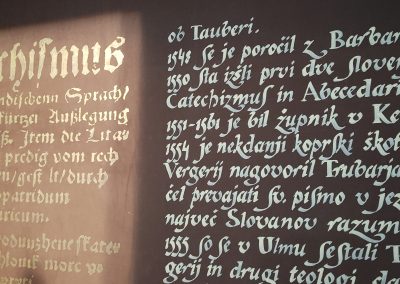 chismus
ndischenn Sprach/
kürtzer Außlegung
Item die Lita=
predig vom rech
en/gest lt/durch
opatridum
uricum.
ob Tauberi.
1548 se je poročil z Barbar
1550 sta izšli prvi dve sloven
Catechizmus in Abecedari
1551-1561 je bil župnik v Ke
1554 je nekdanji koprski ško
Vergerij nagovoril Trubarja
čel prevajati sv. pismo v jez
največ Slovanov razum
1555 so se v Ulmu sestali T
gerij in drugi teologi